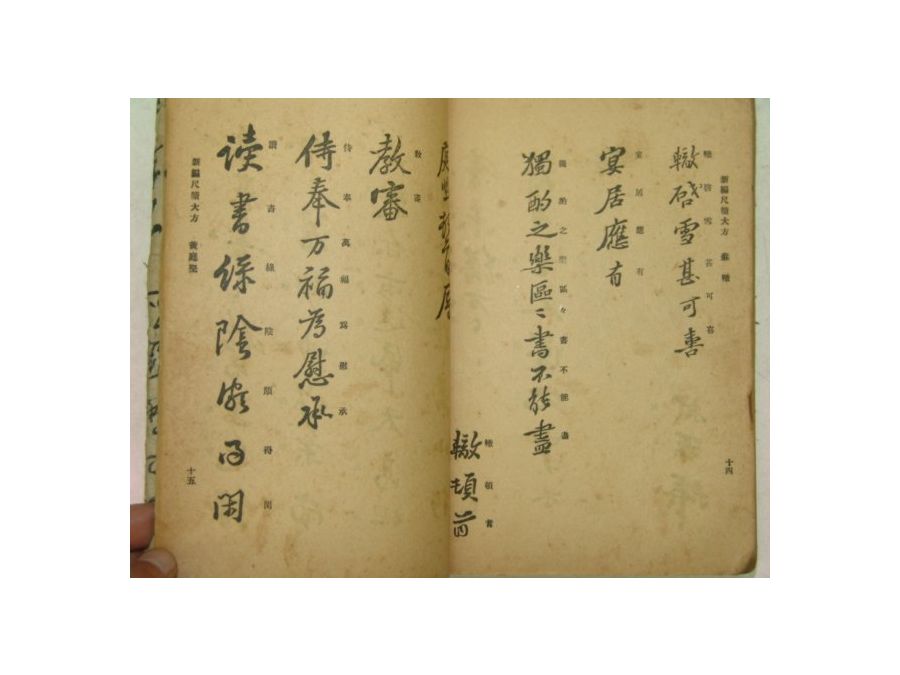 新編尺牘大方　蘇轍
十四
轍啓雪甚可喜
轍啓雪甚可喜
宴居應有
宴居應有
獨酌之樂區〻書不能盡
獨酌之樂區々書不能盡
轍頓首
轍頓首
教審
教審
侍奉万福為慰承
侍奉萬福爲慰承
读書綠陰頗得閑
讀書綠陰頗得閑
新編尺牘大方　黃庭堅
十五